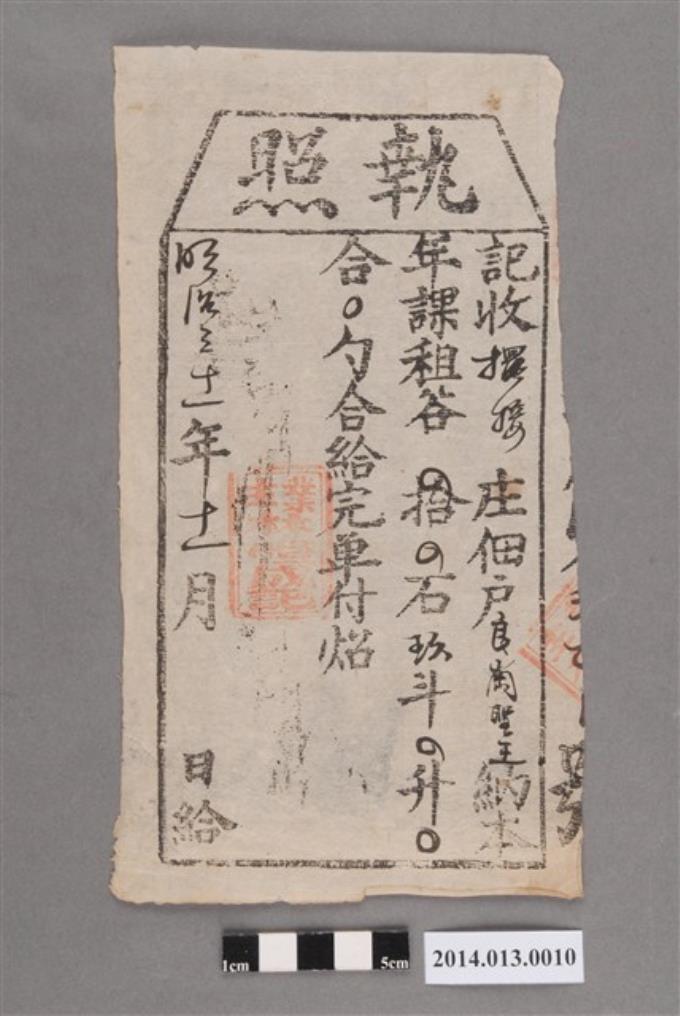 執照
記收擺接庄佃戶良崗聖王納本
年課租谷〇拾〇石玖斗〇升〇
合〇勺合給完单付炤
明治三十一年十一月 日給
號
1cm 5cm
2014.013.0010